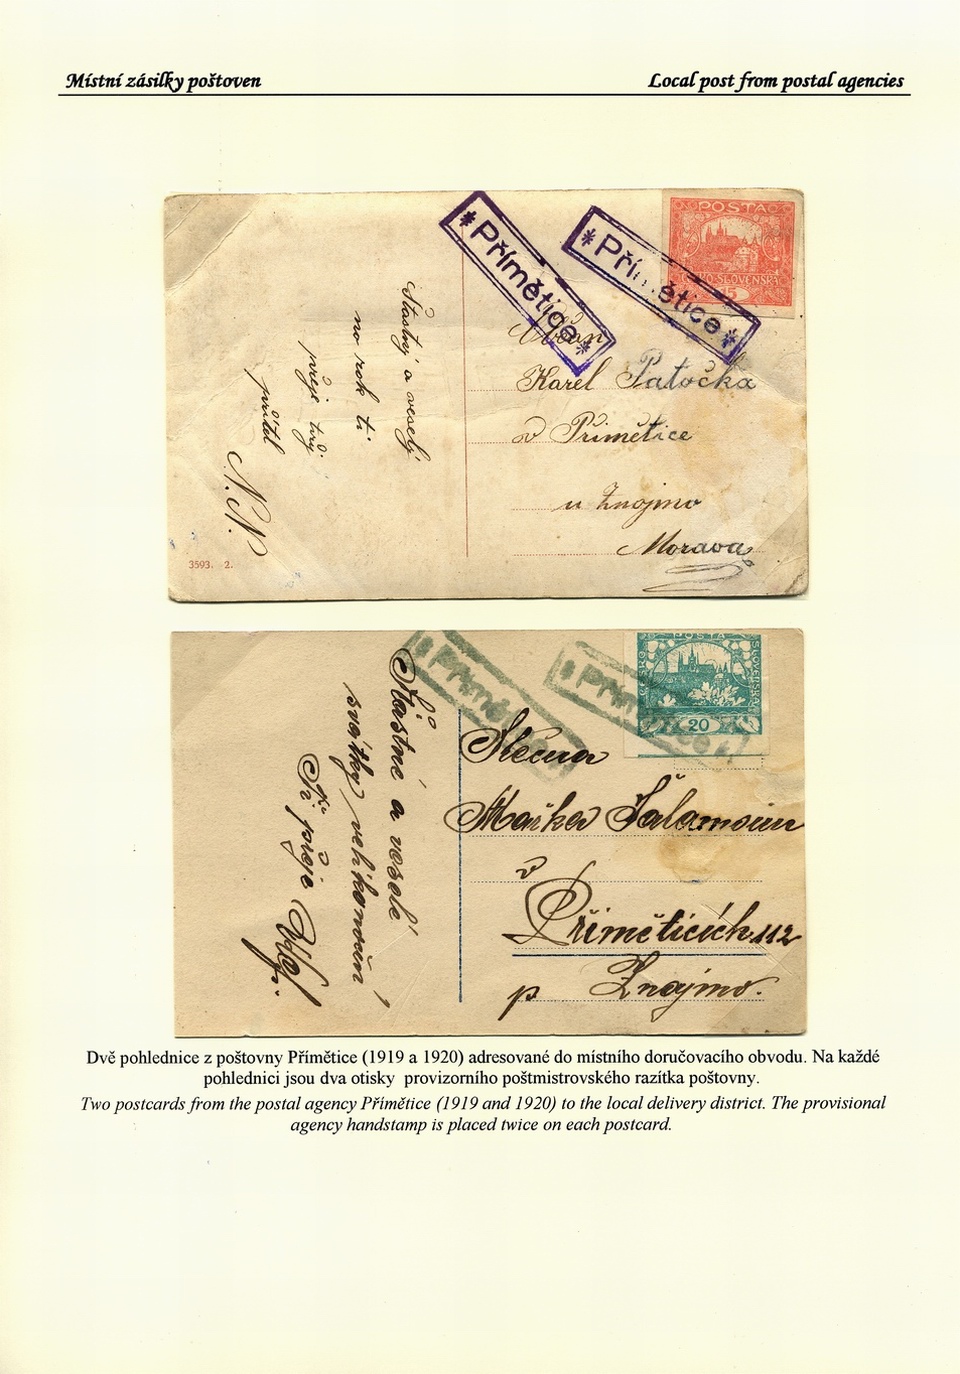 Místní zásilky poštoven
Local post from postal agencies
* Přímětice *
* Přímětice *
POSTA
ČESKO-SLOVENSKÁ
15
Šťastný a veselý
no rok ti
přeje tvůj
přítel
N. N.
Karel Patočka
v Přimětice
u Znojmo
Morava
3593. 2.
* Přímětice *
* Přímětice *
POSTA
ČESKO
SLOVENSKÁ
20
Šťastné a veselé
svátky velikonoční
Ti přeje
Slečna
Mařka Šalamoun
v
Příměticích 112
p Znojmo.
Dvě pohlednice z poštovny Přímětice (1919 a 1920) adresované do místního doručovacího obvodu. Na každé
pohlednici jsou dva otisky provizorního poštmistrovského razítka poštovny.
Two postcards from the postal agency Přímětice (1919 and 1920) to the local delivery district. The provisional
agency handstamp is placed twice on each postcard.